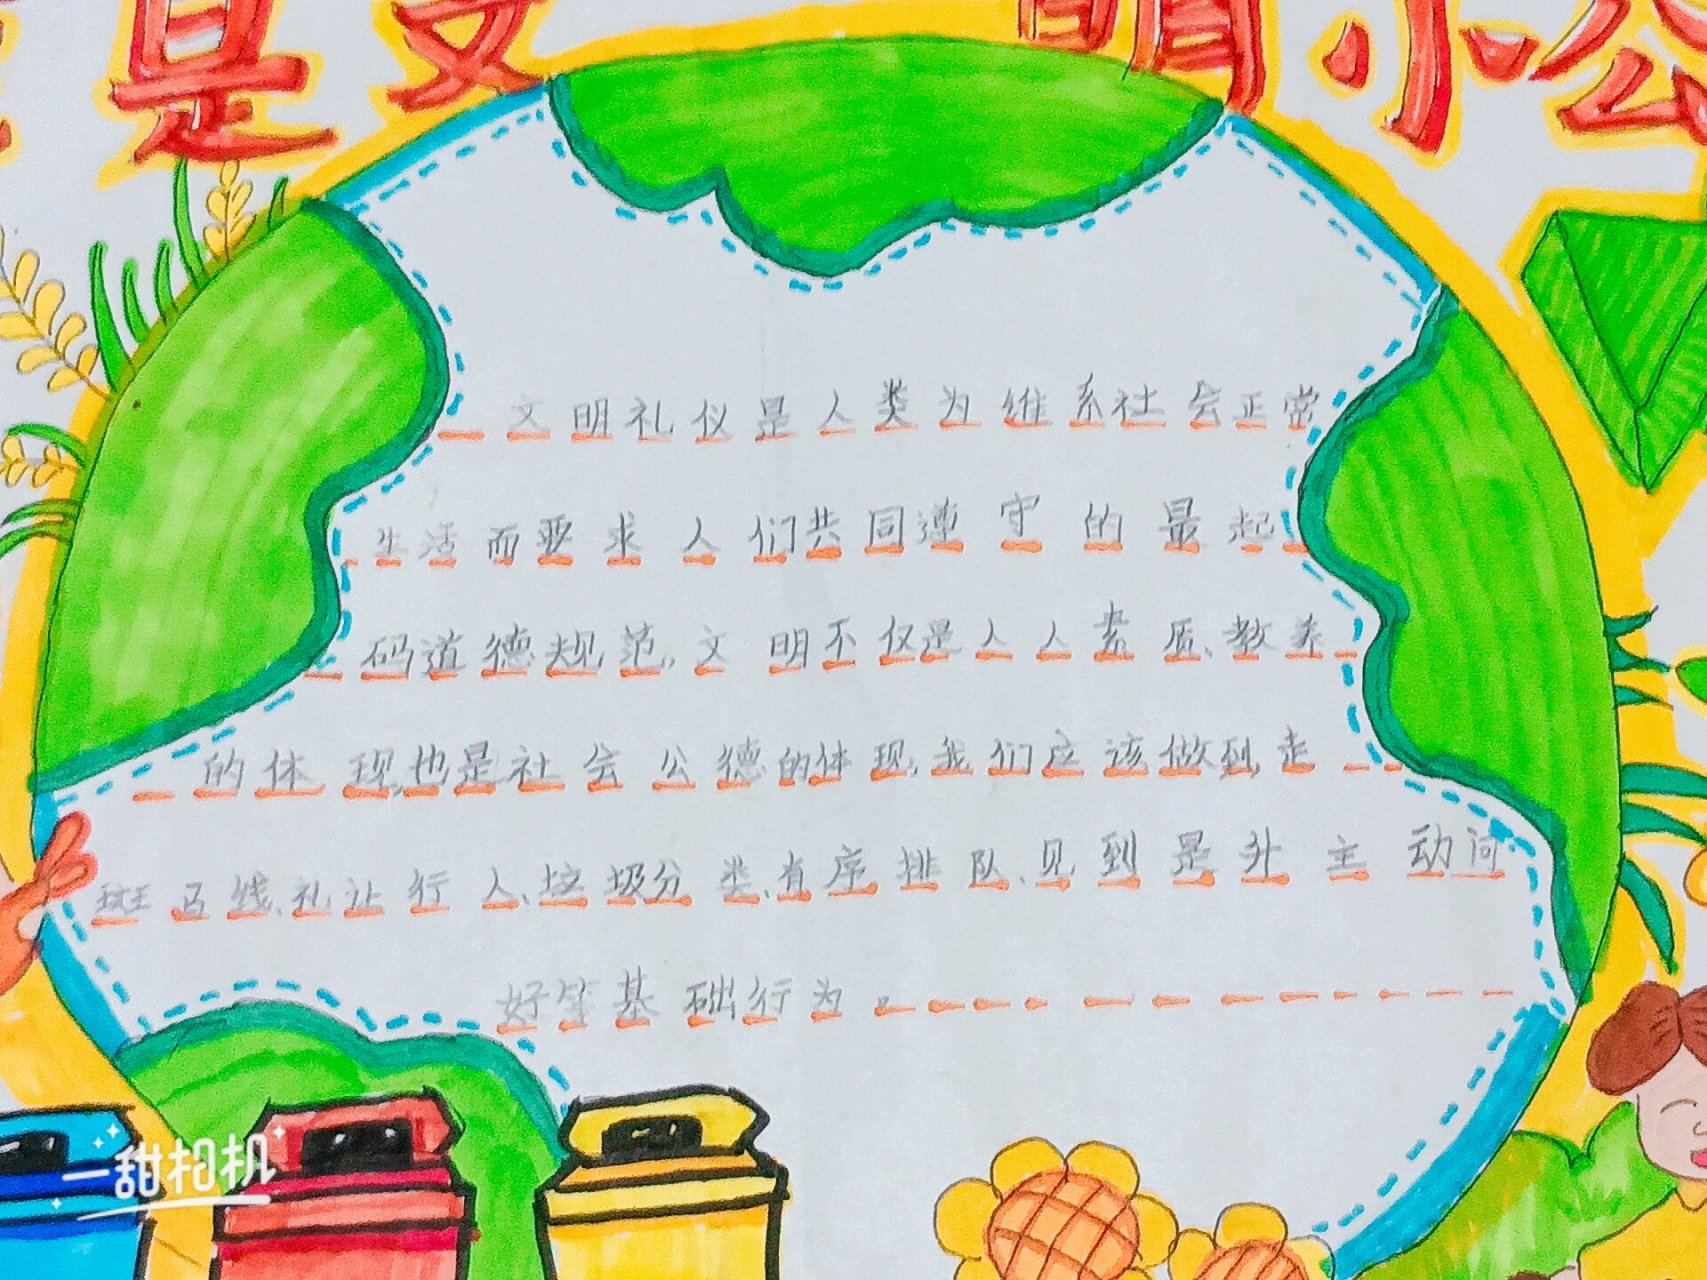 是文明小公
文明礼仪是人类为维系社会正常
生活而要求人们共同遵守的最起
码道德规范,文明不仅是人人素质、教养
的体现,也是社会公德的体现,我们应该做到,走
斑马线、礼让行人、垃圾分类、有序排队、见到是升主动问
好等基础行为。
一甜相机